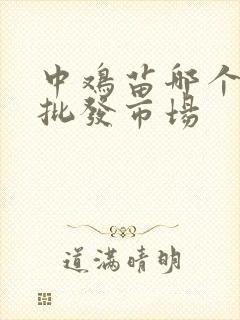 中鸡苗那个
批發市場
道满晴明